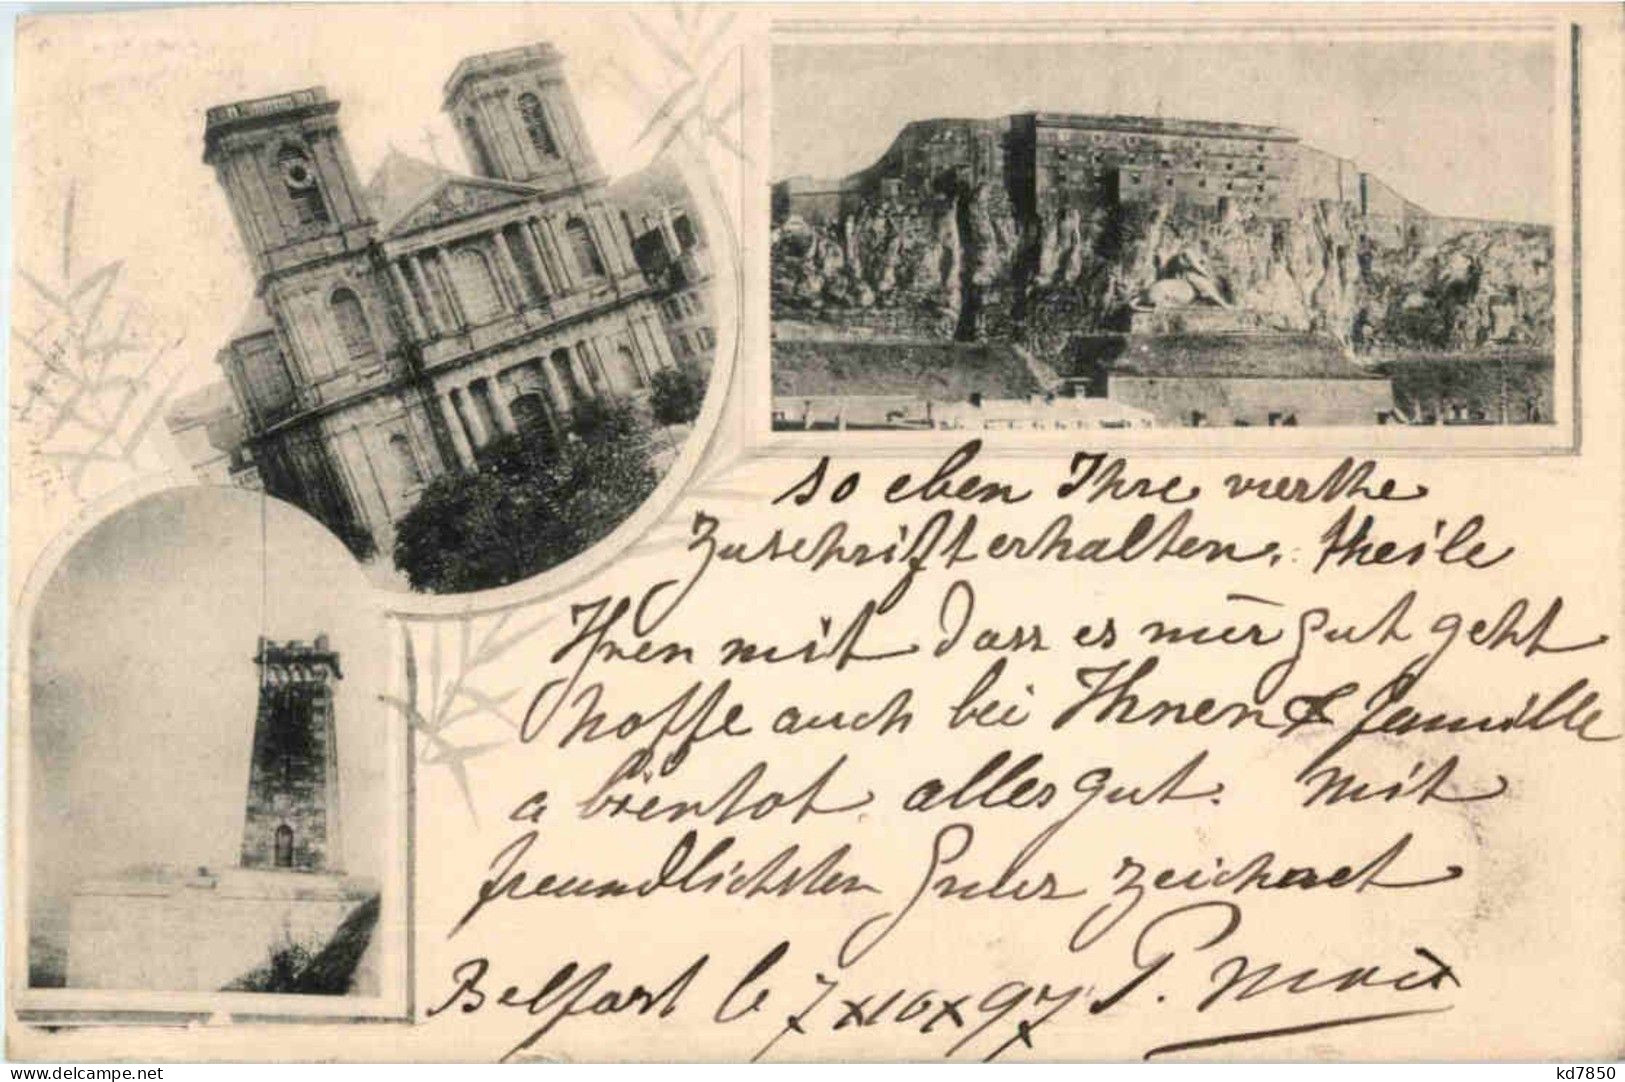 so eben Ihre werthe
Zuschrift erhalten. theile
Ihnen mit dass es mir gut geht
hoffe auch bei Ihnen & Famille
a bientot alles gut. Mit
freundlichsten Gruss zeichnet
Belfort le 7 x 10 x 97 P.
delcampe.net
kd7850